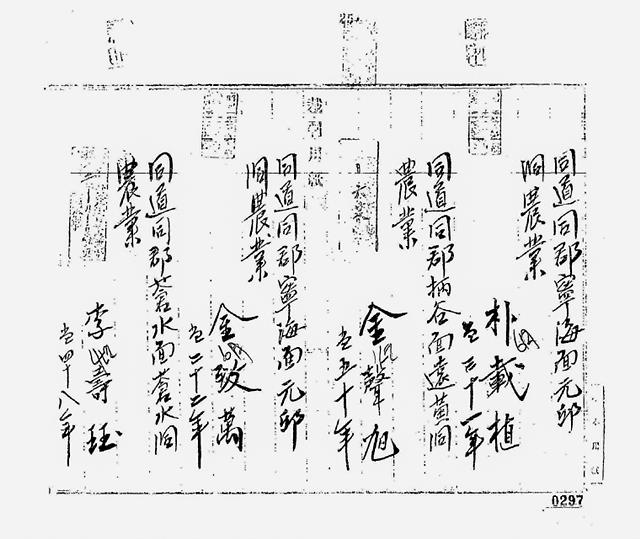 同道同郡寧海面元邱
洞農業
朴載植
當三十一年
同道同郡柄谷面遠黃洞
農業
金聲旭
當五十年
裁判用紙
同道同郡寧海面元邱
洞農業
金致萬
當二十二年
同道同郡蒼水面蒼水洞
農業
李壽珏
當四十八年
0297